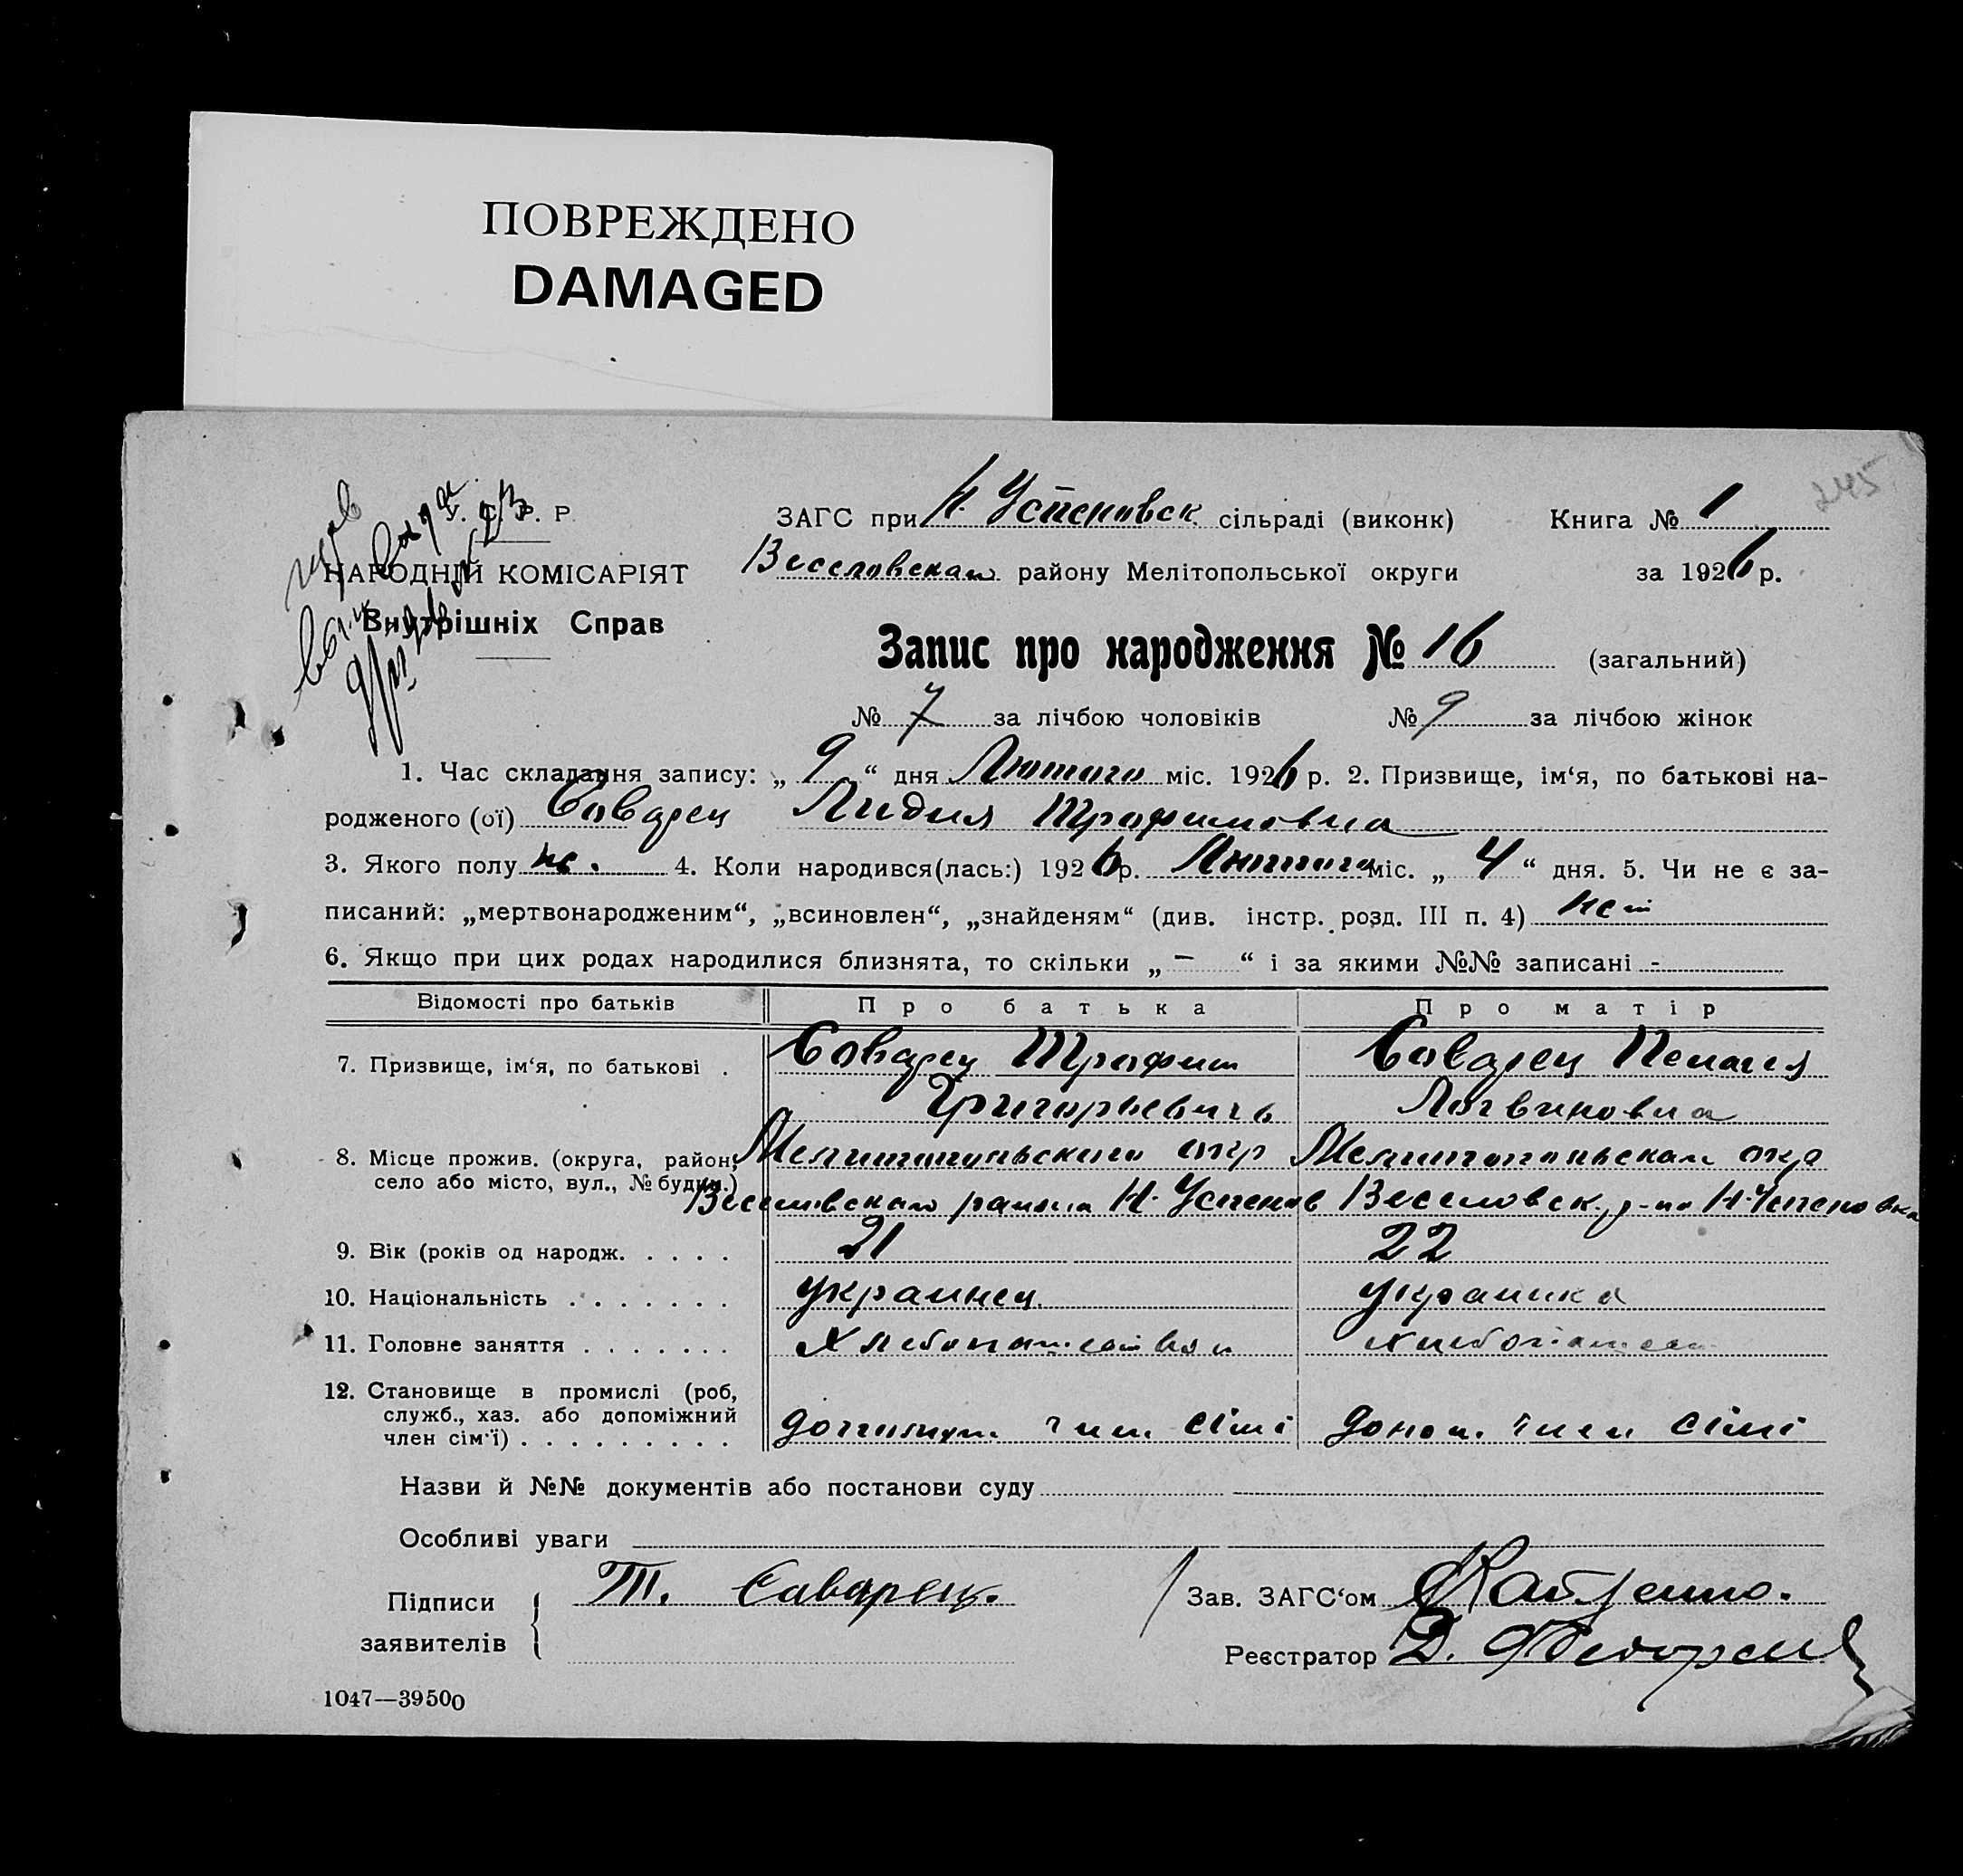 ПОВРЕЖДЕНО
DAMAGED
245
У. С. Р. Р.
НАРОДНІЙ КОМІСАРІЯТ
Внутрішніх Справ
ЗАГС при Н. Успеновск сільраді (виконк) Книга № 1
Веселовского району Мелітопольської округи за 1926 р.
Запис про народження № 16 (загальний)
№ 7 за лічбою чоловіків № 9 за лічбою жінок
1. Час складання запису: „ 9 “ дня Лютого міс. 1926 р. 2. Призвище, ім‘я, по батькові на-
родженого (ої) Соварец Лидия Трофимовна
3. Якого полу ж. 4. Коли народився(лась:) 1926 р. Лютого міс. „ 4 “ дня. 5. Чи не є за-
писаний: „мертвонародженим“, „всиновлен“, „знайденям“ (див. інстр. розд. III п. 4) нет
6. Якщо при цих родах народилися близнята, то скільки „ – “ і за якими №№ записані -
Відомості про батьків Про батька Про матір
7. Призвище, ім‘я, по батькові . Соварец Трофим Соварец Пелагея
Григорьевичь Логвиновна
8. Місце прожив. (округа, район, Мелитопольского окр Мелитопольского окр
село або місто, вул., № будин.) Веселовского района Н. Успенов Веселовск. р-на Н. Успеновка
9. Вік (років од народж. . . . . 21 22
10. Національність . . . . . . . украинец украинка
11. Головне заняття . . . . . . . Хлебопашество
12. Становище в промислі (роб,
служб., хаз. або допоміжний
член сім‘ї) . . . . . . . . . член сімї допом. член сімї
Назви й №№ документів або постанови суду
Особливі уваги
Підписи
заявителів
Т. Саварец.
Зав. ЗАГС‘ом
Реєстратор Д.
1047—39500